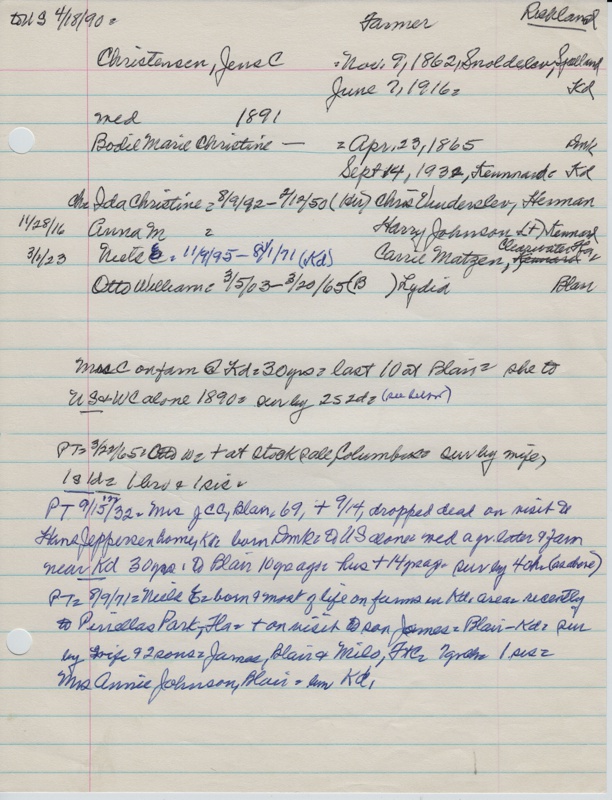 to U S 4/18/90 = Farmer Richland
Christensen, Jens C = Nov. 9, 1862, Snoldelev, Sjelland
June 7, 1916 = Kd
med 1891
Bodil Marie Christine — = Apr. 23, 1865 Dmk
Sept 14, 1932, Kennard = Kd
ch = Ida Christine = 8/9/92 - 2/12/50 (Hir) Chris Vinderslev, Herman
11/28/16 Anna M = Harry Johnson (Lt) Kennard
3/1/23 Niels E = 11/9/95 - 8/1/71 (Kd) Carrie Matzen, Kennard Clearwater Fla
Otto William = 3/5/03 - 3/20/65 (B ) Lydia Blair
Mrs C on farm @ Kd = 30 yrs = last 10 at Blair = she to
U S & WC alone 1890 = sur by 2s 2d = (see below)
PT = 3/22/65 = Otto W = + at stock sale, Columbus = sur by wife,
1s 1d = 1 bro & 1 sis =
PT 9/15/32 = Mrs J C C, Blair, 69, + 9/14, dropped dead on visit to
Hans Jeppersen home, Kn born Dmk = to US alone = med a yr later & farm
near Kd 30 yrs = to Blair 10 yrs ago = hus + 14 yrs ago = sur by 4 ch (as above)
PT = 8/9/71 = Niels E = born & most of life on farms in Kd area = recently
to Pinellas Park, Fla = + on visit to son James = Blair - Kd = sur
by wife & 2 sons = James, Blair & Milo, = 7 grch = 1 sis =
Mrs Annie Johnson, Blair = Kd,